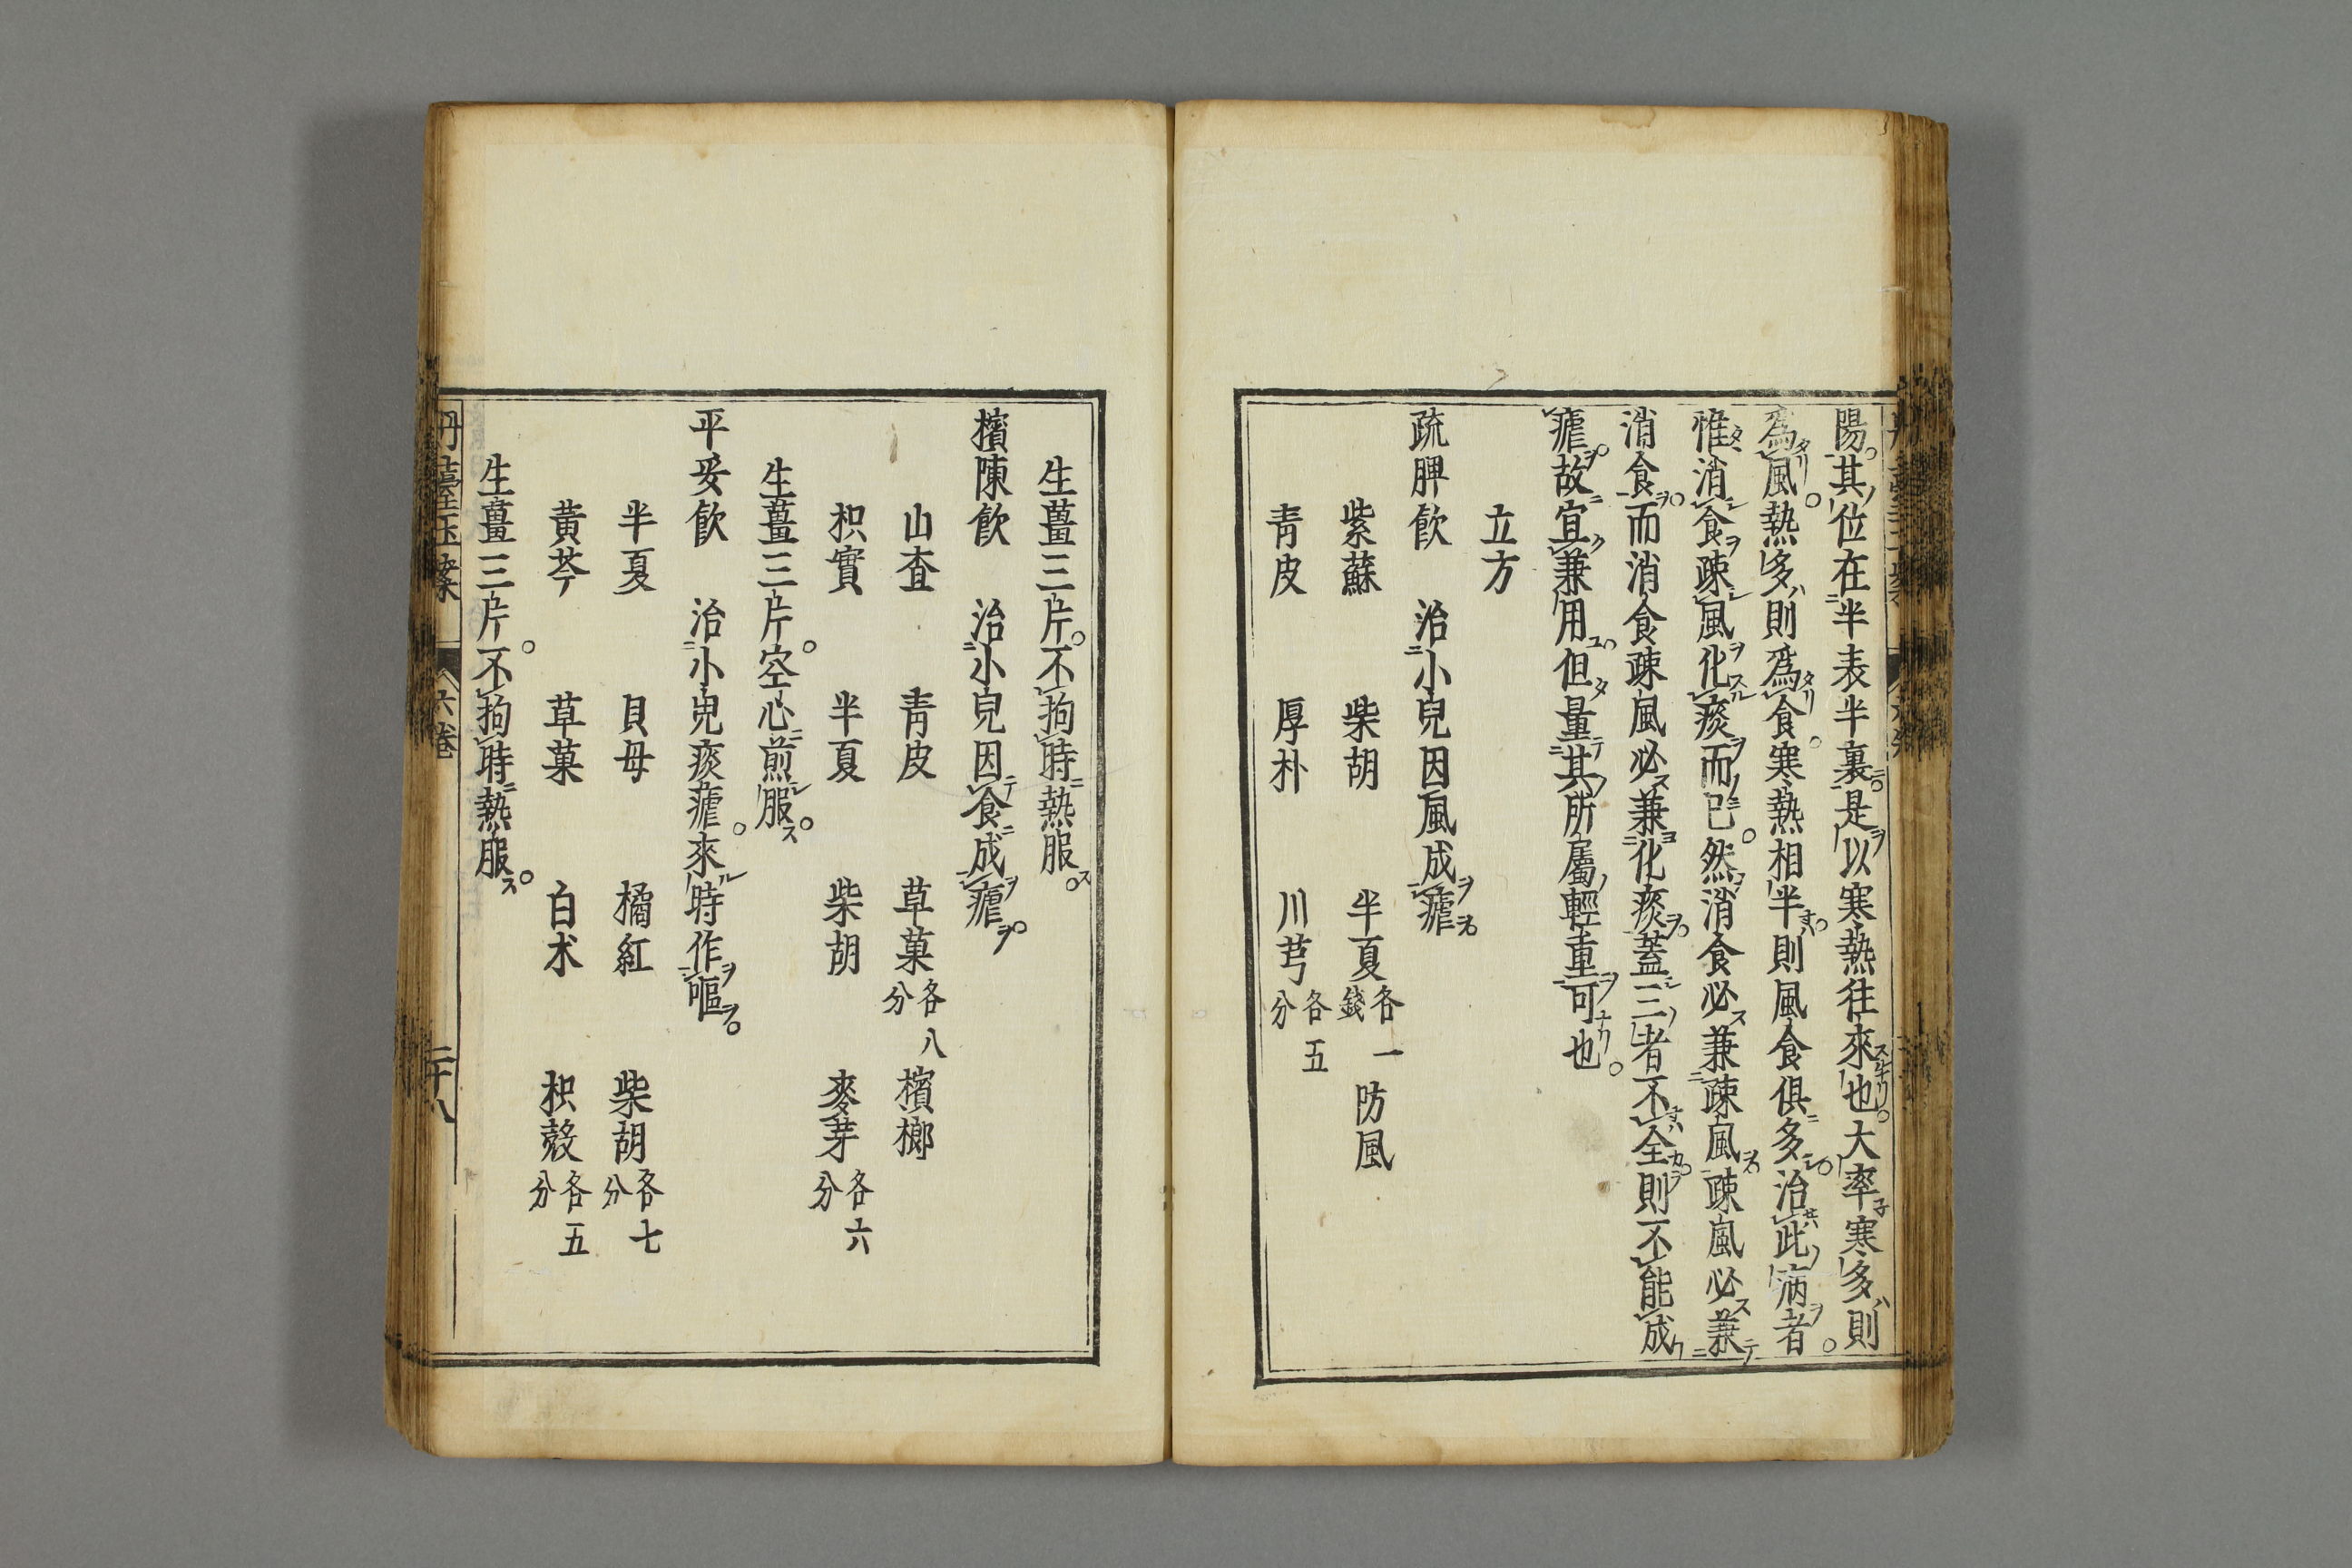 陽其位在半表半裏是以寒熱往來也大率寒多則
爲風熱多則爲食寒熱相半則風食俱多治此病者
惟消食疎風化痰而已然消食必兼疎風疎風必兼
消食而消食疎風必兼化痰蓋三者不全則不能成
瘧故宜兼用但量其所屬輕重可也
立方
疏脾飮 治小兒因風成瘧
紫蘇 柴胡 半夏各一錢 防風
靑皮 厚朴 川芎各五分
生薑三片不拘時熱服
檳陳飮 治小兒因食成瘧
山查 靑皮 草菓各八分 檳榔
枳實 半夏 柴胡 麥芽各六分
生薑三片空心煎服
平妥飮 治小兒痰瘧來時作嘔
半夏 貝母 橘紅 柴胡各七分
黃芩 草菓 白朮 枳殼各五分
生薑三片不拘時熱服
丹臺玉案 六卷 二十八